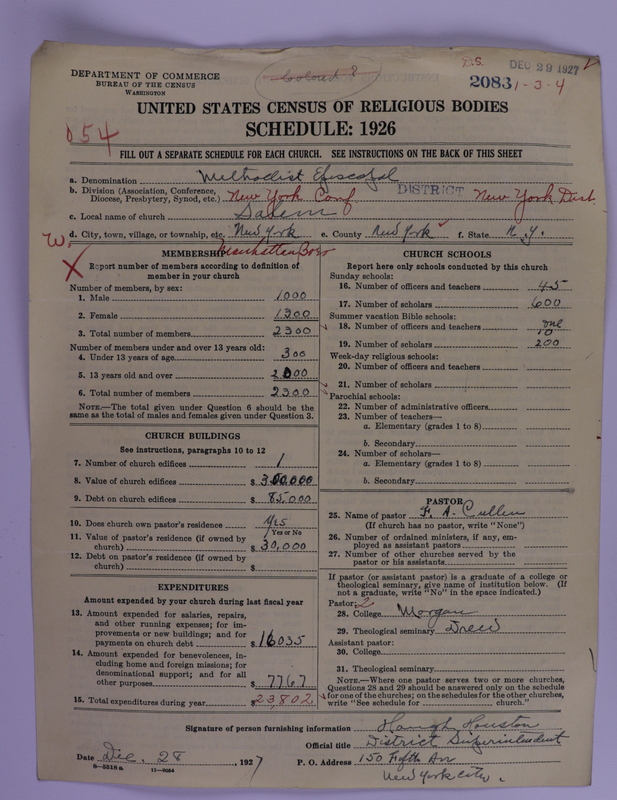 DEPARTMENT OF COMMERCE
BUREAU OF THE CENSUS
WASHINGTON
Colored?
D.S. DEC 29 1927
2083 1-3-4
UNITED STATES CENSUS OF RELIGIOUS BODIES
SCHEDULE: 1926
054
FILL OUT A SEPARATE SCHEDULE FOR EACH CHURCH. SEE INSTRUCTIONS ON THE BACK OF THIS SHEET
a. Denomination Methodist Episcopal
b. Division (Association, Conference, Diocese, Presbytery, Synod, etc.) New York Conf DISTRICT New York Dist.
c. Local name of church Salem
d. City, town, village, or township, etc. New York e. County New York f. State N.Y.
Manhattan Boro
W
X
MEMBERSHIP
Report number of members according to definition of
member in your church
Number of members, by sex:
1. Male 1000
2. Female 1300
3. Total number of members 2300
Number of members under and over 13 years old:
4. Under 13 years of age 300
5. 13 years old and over 2000
6. Total number of members 2300
NOTE.—The total given under Question 6 should be the
same as the total of males and females given under Question 3.
CHURCH BUILDINGS
See instructions, paragraphs 10 to 12
7. Number of church edifices 1
8. Value of church edifices $ 300,000
9. Debt on church edifices $ 85,000
10. Does church own pastor's residence Yes
Yes or No
11. Value of pastor's residence (if owned by
church) $ 30,000
12. Debt on pastor's residence (if owned by
church) $
EXPENDITURES
Amount expended by your church during last fiscal year
13. Amount expended for salaries, repairs,
and other running expenses; for im-
provements or new buildings; and for
payments on church debt $ 16035
14. Amount expended for benevolences, in-
cluding home and foreign missions; for
denominational support; and for all
other purposes $ 7767
15. Total expenditures during year $ 23,802
CHURCH SCHOOLS
Report here only schools conducted by this church
Sunday schools:
16. Number of officers and teachers 45
17. Number of scholars 600
Summer vacation Bible schools: one
18. Number of officers and teachers 10
19. Number of scholars 200
Week-day religious schools:
20. Number of officers and teachers
21. Number of scholars
Parochial schools:
22. Number of administrative officers
23. Number of teachers—
a. Elementary (grades 1 to 8)
b. Secondary
24. Number of scholars—
a. Elementary (grades 1 to 8)
b. Secondary
PASTOR
25. Name of pastor F. A. Cullen
(If church has no pastor, write "None")
26. Number of ordained ministers, if any, em-
ployed as assistant pastors
27. Number of other churches served by the
pastor or his assistants
If pastor (or assistant pastor) is a graduate of a college or
theological seminary, give name of institution below. (If
not a graduate, write "No" in the space indicated.)
Pastor: 2
28. College Morgan
29. Theological seminary Drew
Assistant pastor:
30. College
31. Theological seminary
NOTE.—Where one pastor serves two or more churches,
Questions 28 and 29 should be answered only on the schedule
for one of the churches; on the schedules for the other churches,
write "See schedule for church."
Signature of person furnishing information Houston
Official title District Superintendent
Date Dec. 28, 1927 P. O. Address 150 Fifth Av
New York City.
8-5318a 11-8054